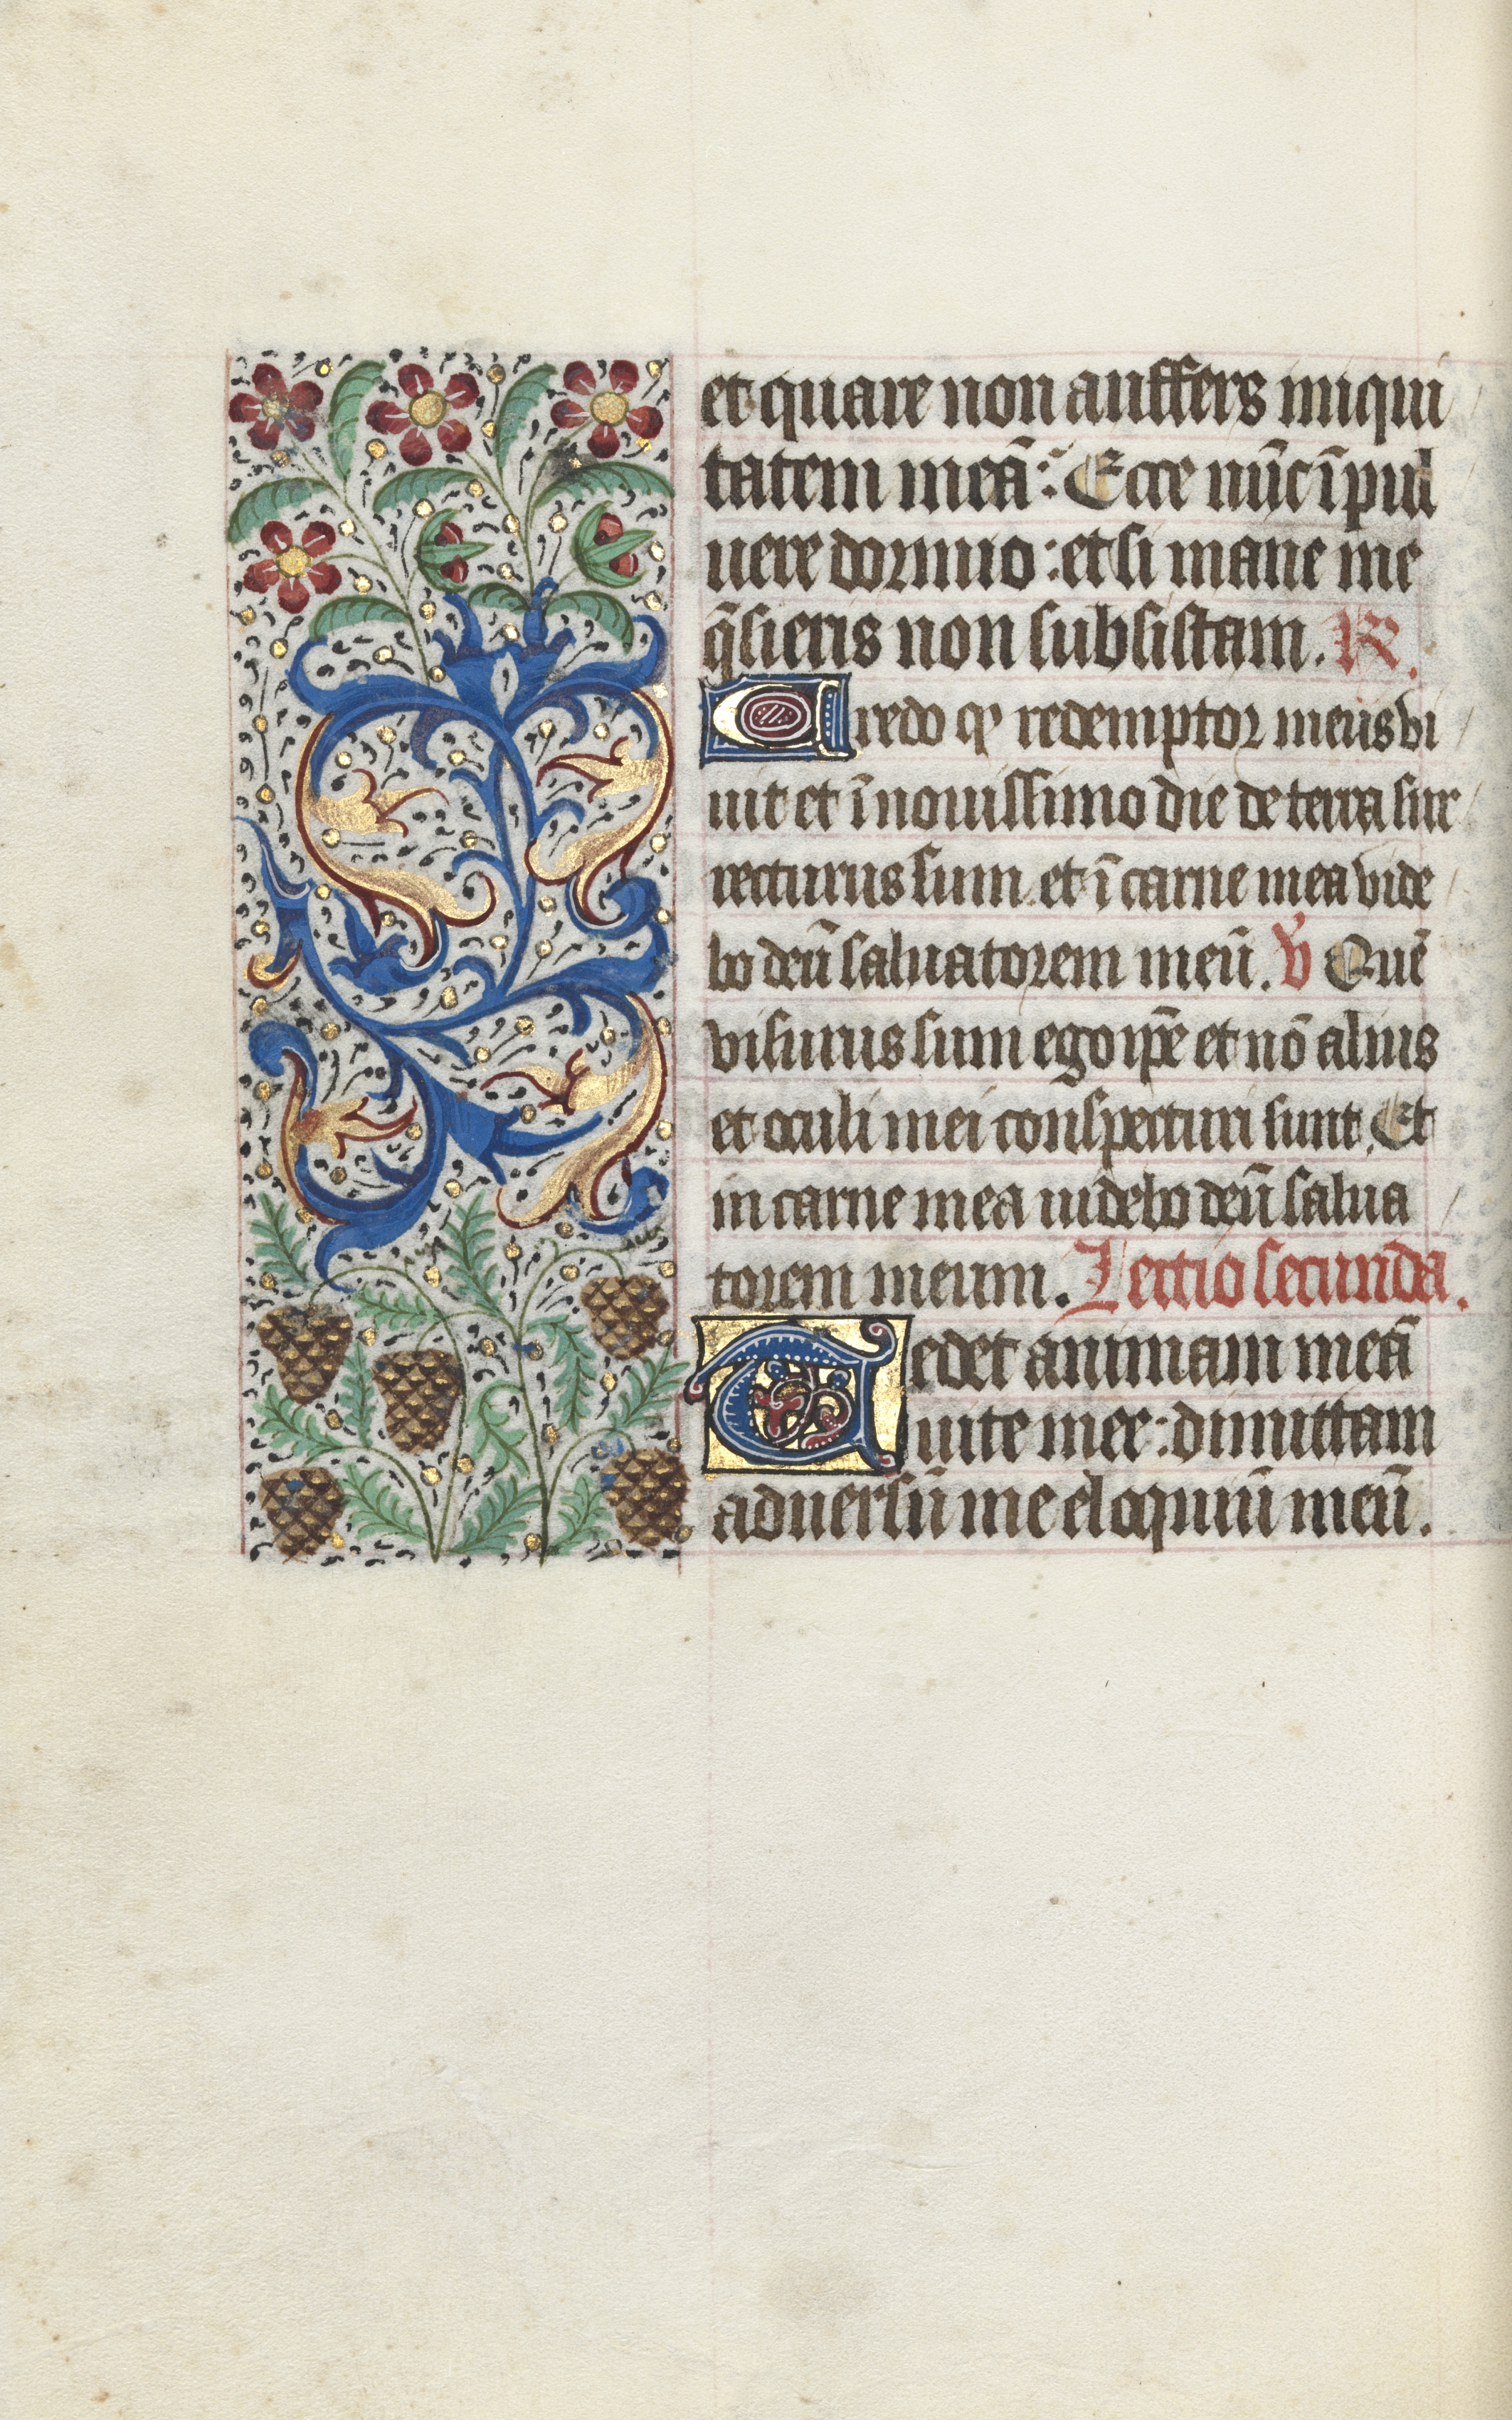 et quare non auffers iniqui
tatem meā: Ecce nūc ī pul
uere dormio: et si mane me
q̄sieris non subsistam. R.
Credo qͥ redemptor meus vi
uit et ī nouissimo die de terra sur
recturus sum et ī carne mea vide
bo deū saluatorem meū. V Quē
visurus sum ego ip̄e et nō alius
et oculi mei conspecturi sunt. Et
in carne mea uidebo deū salua
torem meum. Lectio secunda.
Tedet animam meā
uite mee: dimittam
aduersū me eloquiū meū.